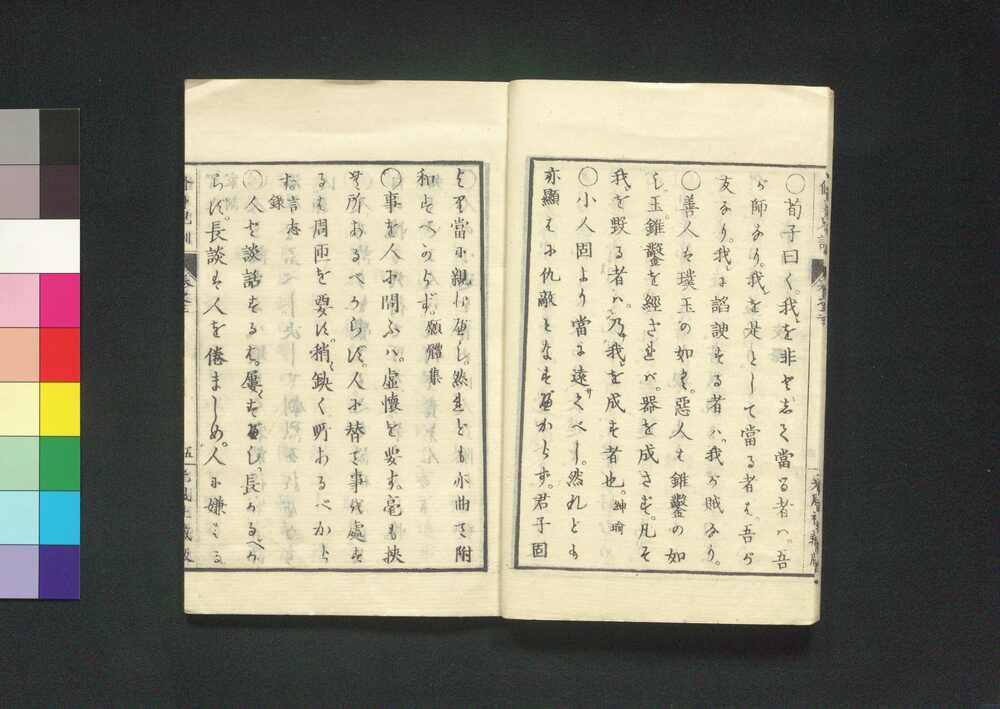 ○荀子曰く。我を非として當る者ハ。吾
が師なり。我を是として當る者は。吾が
友なり。我に諂諛する者ハ。我が賊なり。
○善人は璞玉の如く。惡人は錐鑿の如
し。玉。錐鑿を經ざれバ。器を成さず。凡そ
我を毀る者ハ。乃我を成す者也。紳瑜
○小人固より當に遠くべし。然れども
亦顯はに仇敵となすべからず。君子固
より當に親むべし。然れども亦曲て附
和すべからず。願體集
○事を人に問ふハ。虚懷を要す。毫も挾
む所あるべからず。人に替て事を處す
るは周匝を要す。稍も缺く所あるべから
ず。言志錄
○人と談話するは。屢すべし。長かるべか
らず。長談は人を倦ましめ。人に嫌はる